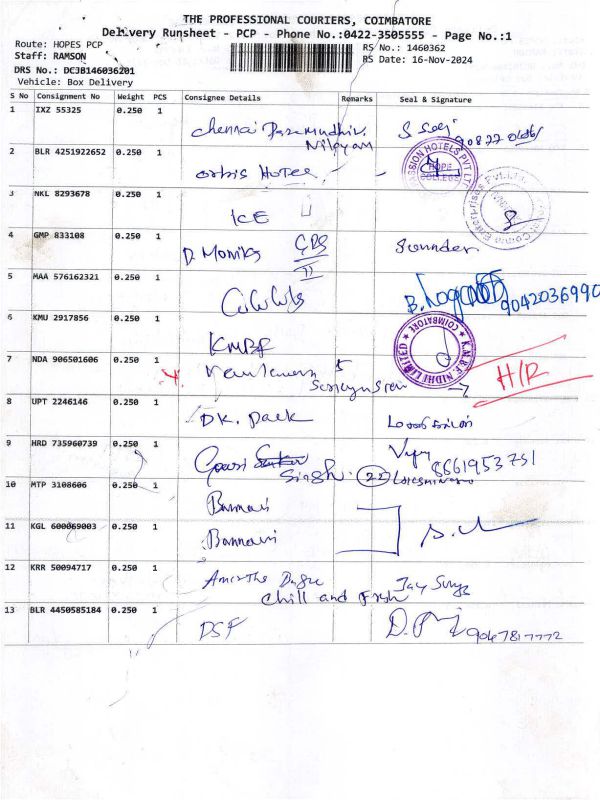 THE PROFESSIONAL COURIERS, COIMBATORE
Delivery Runsheet - PCP - Phone No.:0422-3505555 - Page No.:1
Route: HOPES PCP RS No.: 1460362
Staff: RAMSON RS Date: 16-Nov-2024
DRS No.: DCJB146036201
Vehicle: Box Delivery
S No Consignment No Weight PCS Consignee Details Remarks Seal & Signature
1 IXZ 55325 0.250 1 Chennai
2 BLR 4251922652 0.250 1 Orbis Hotel
PASSION HOTELS PVT LTD
HOPE COLLEGE
3 NKL 8293678 0.250 1 ICE
4 GMP 833108 0.250 1 D. Sounder
5 MAA 576162321 0.250 1 9042036990
6 KMU 2917856 0.250 1 KMBF
K.M.B.F. NIDHI LIMITED
COIMBATORE
7 NDA 906501606 0.250 1 H/R
8 UPT 2246146 0.250 1 DK. Pack
9 HRD 735960739 0.250 1 Gowri Singh 22 Vijay 8561953751
10 MTP 3108606 0.250 1 Bannari
11 KGL 600069003 0.250 1 Bannari
12 KRR 50094717 0.250 1 Amirtha
Chill and Fresh
13 BLR 4450585184 0.250 1 DSF 9047817772